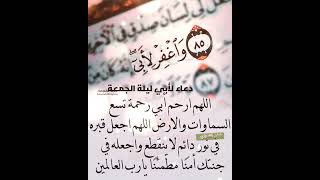 وَاغْفِرْ لِأَبِي
٨٥
دعاء لأبي ليلة الجمعة....
اللهم ارحم ابي رحمة تسع
السماوات والارض اللهم اجعل قبره
في نور دائم لا ينقطع واجعله في
جنتك آمنًا مطمئنًا يارب العالمين